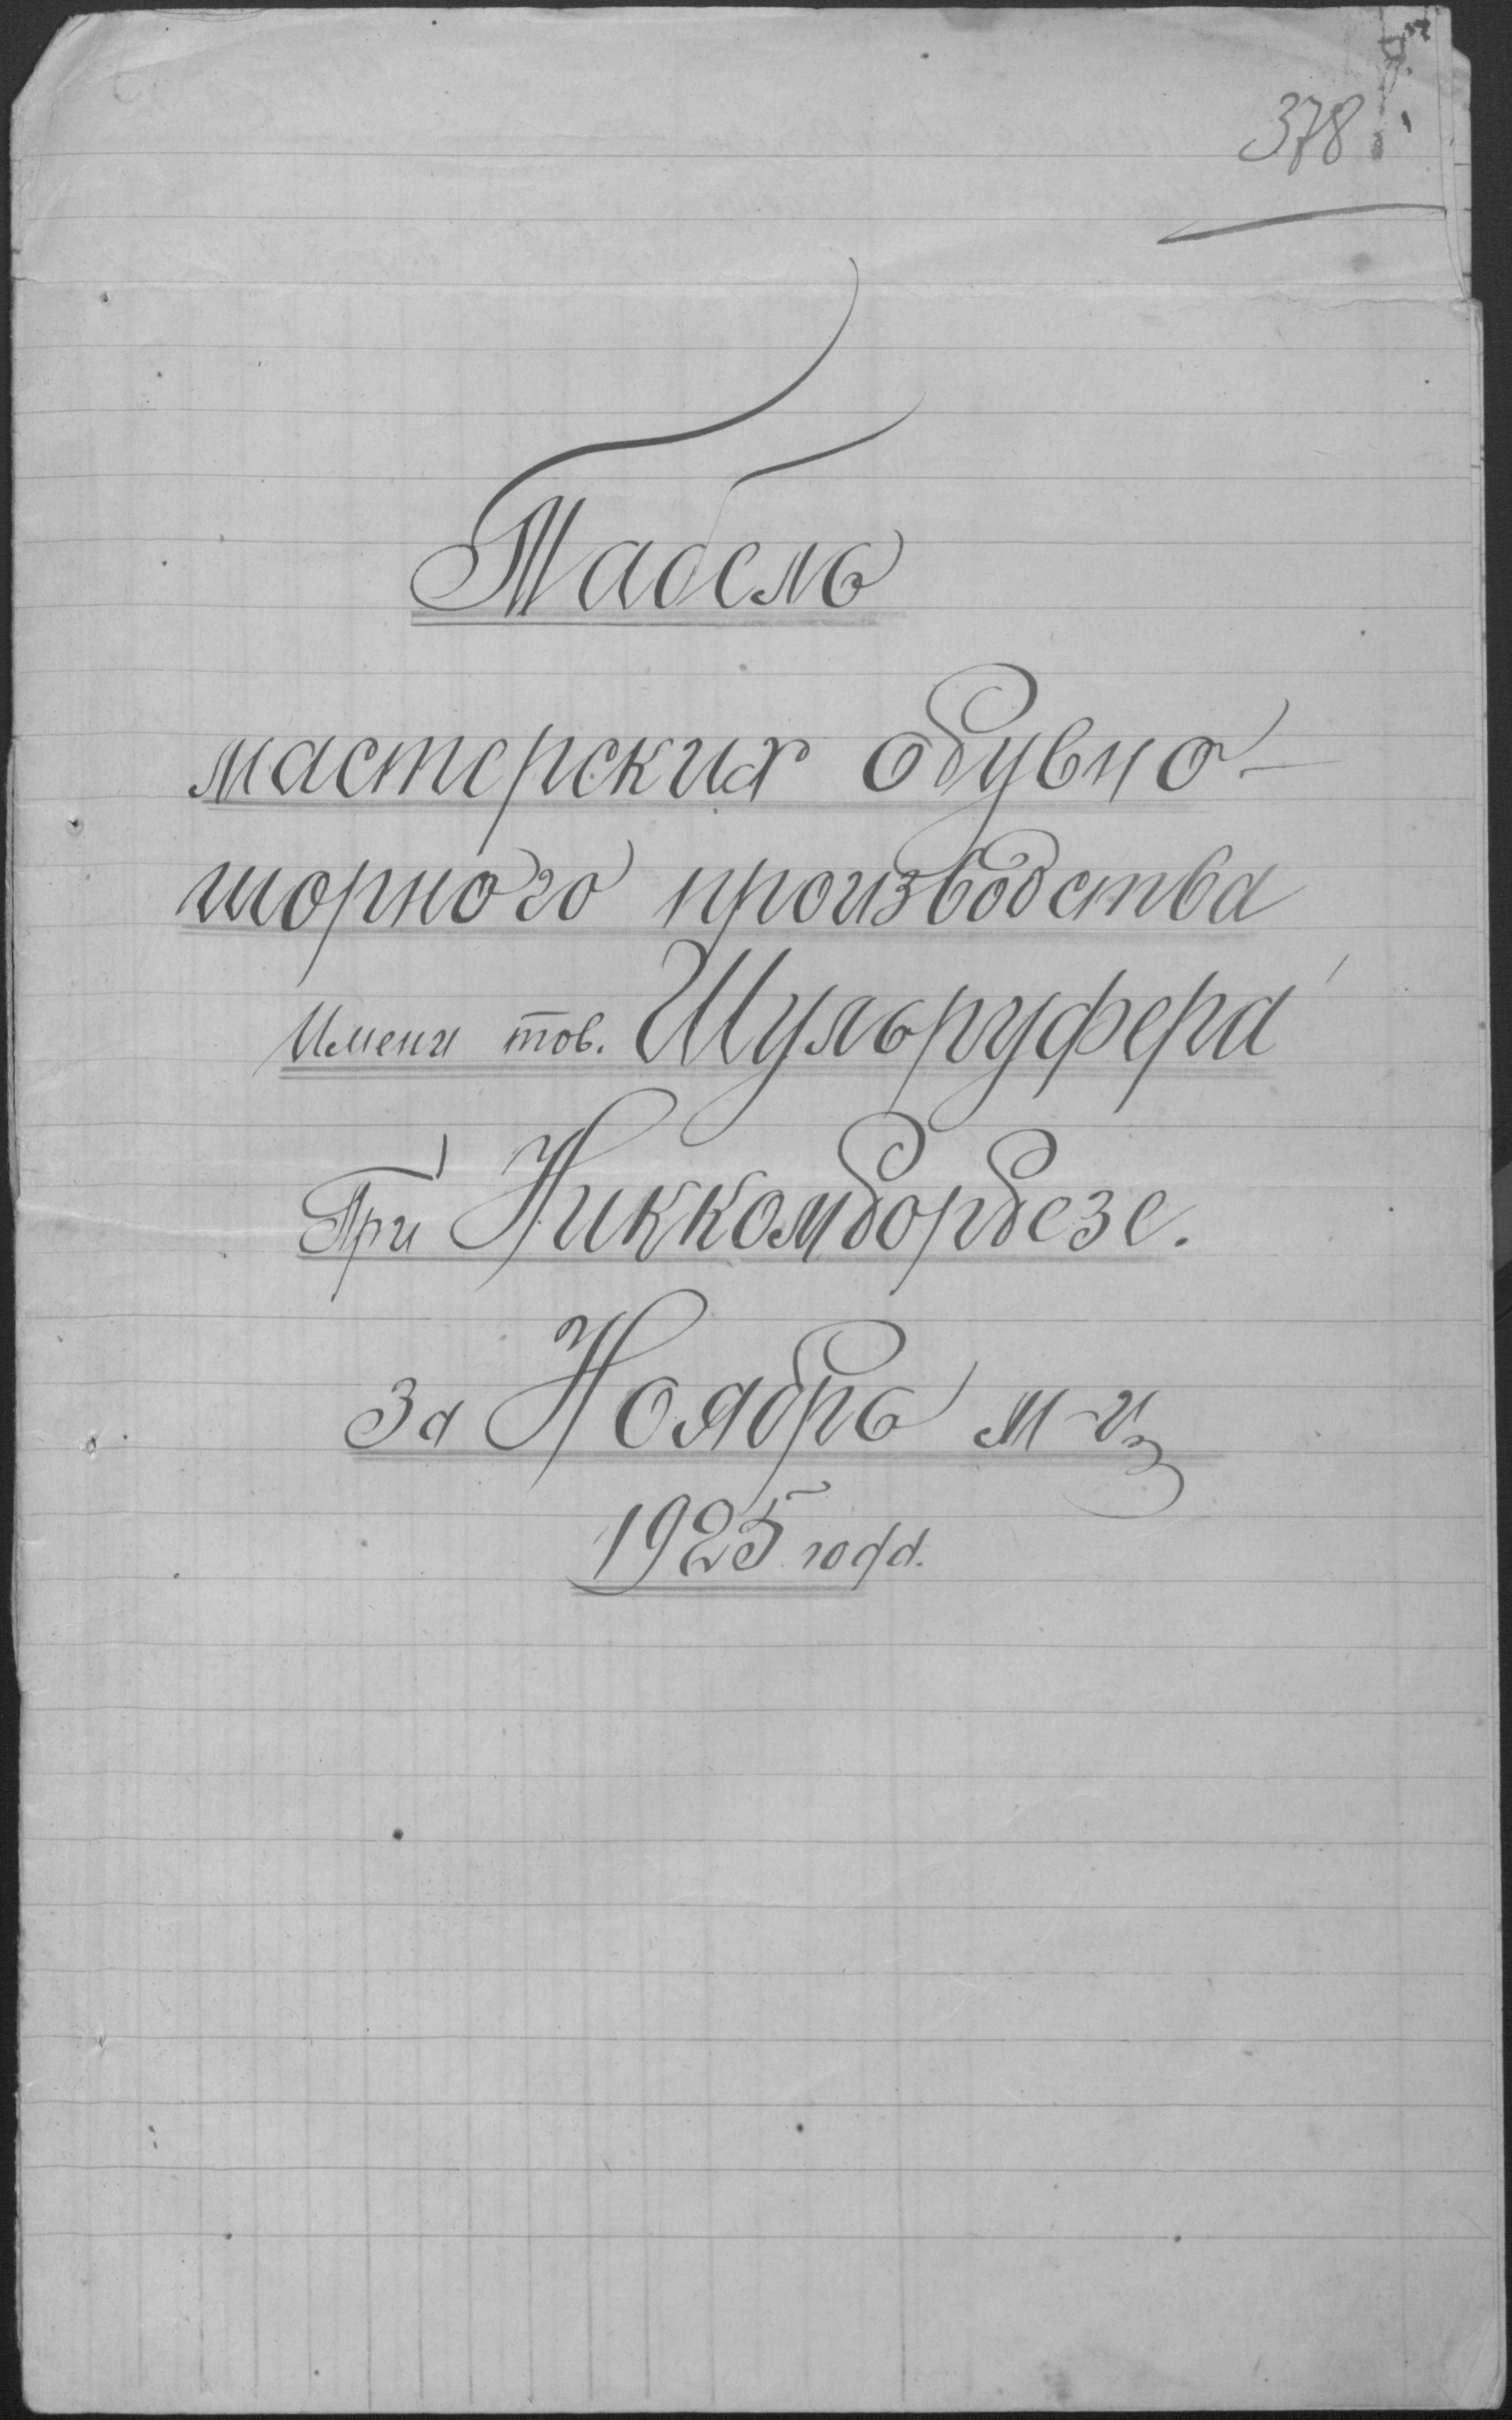 378
Табель
мастерских обувно-
шорного производства
Имени тов. Шульруфера
При Никкомборбезе.
за Ноябрь м-ц
1925 года.